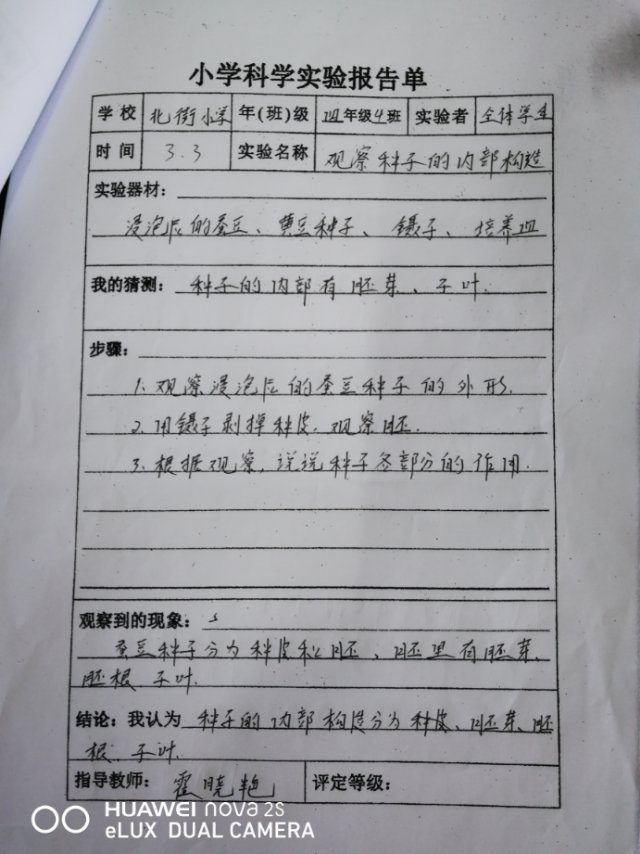 小学科学实验报告单
学校 北街小学 年(班)级 四年级4班 实验者 全体学生
时间 3.3 实验名称 观察种子的内部构造
实验器材:
浸泡后的蚕豆、黄豆种子、镊子、培养皿
我的猜测: 种子的内部有胚芽、子叶.
步骤:
1. 观察浸泡后的蚕豆种子的外形.
2. 用镊子剥掉种皮, 观察胚.
3. 根据观察, 说说种子各部分的作用.
观察到的现象:
蚕豆种子分为种皮和胚、胚里有胚芽、
胚根、子叶.
结论: 我认为 种子的内部构造分为种皮、胚芽、胚
根、子叶.
指导教师: 霍晓艳 评定等级:
HUAWEI nova 2S
eLUX DUAL CAMERA